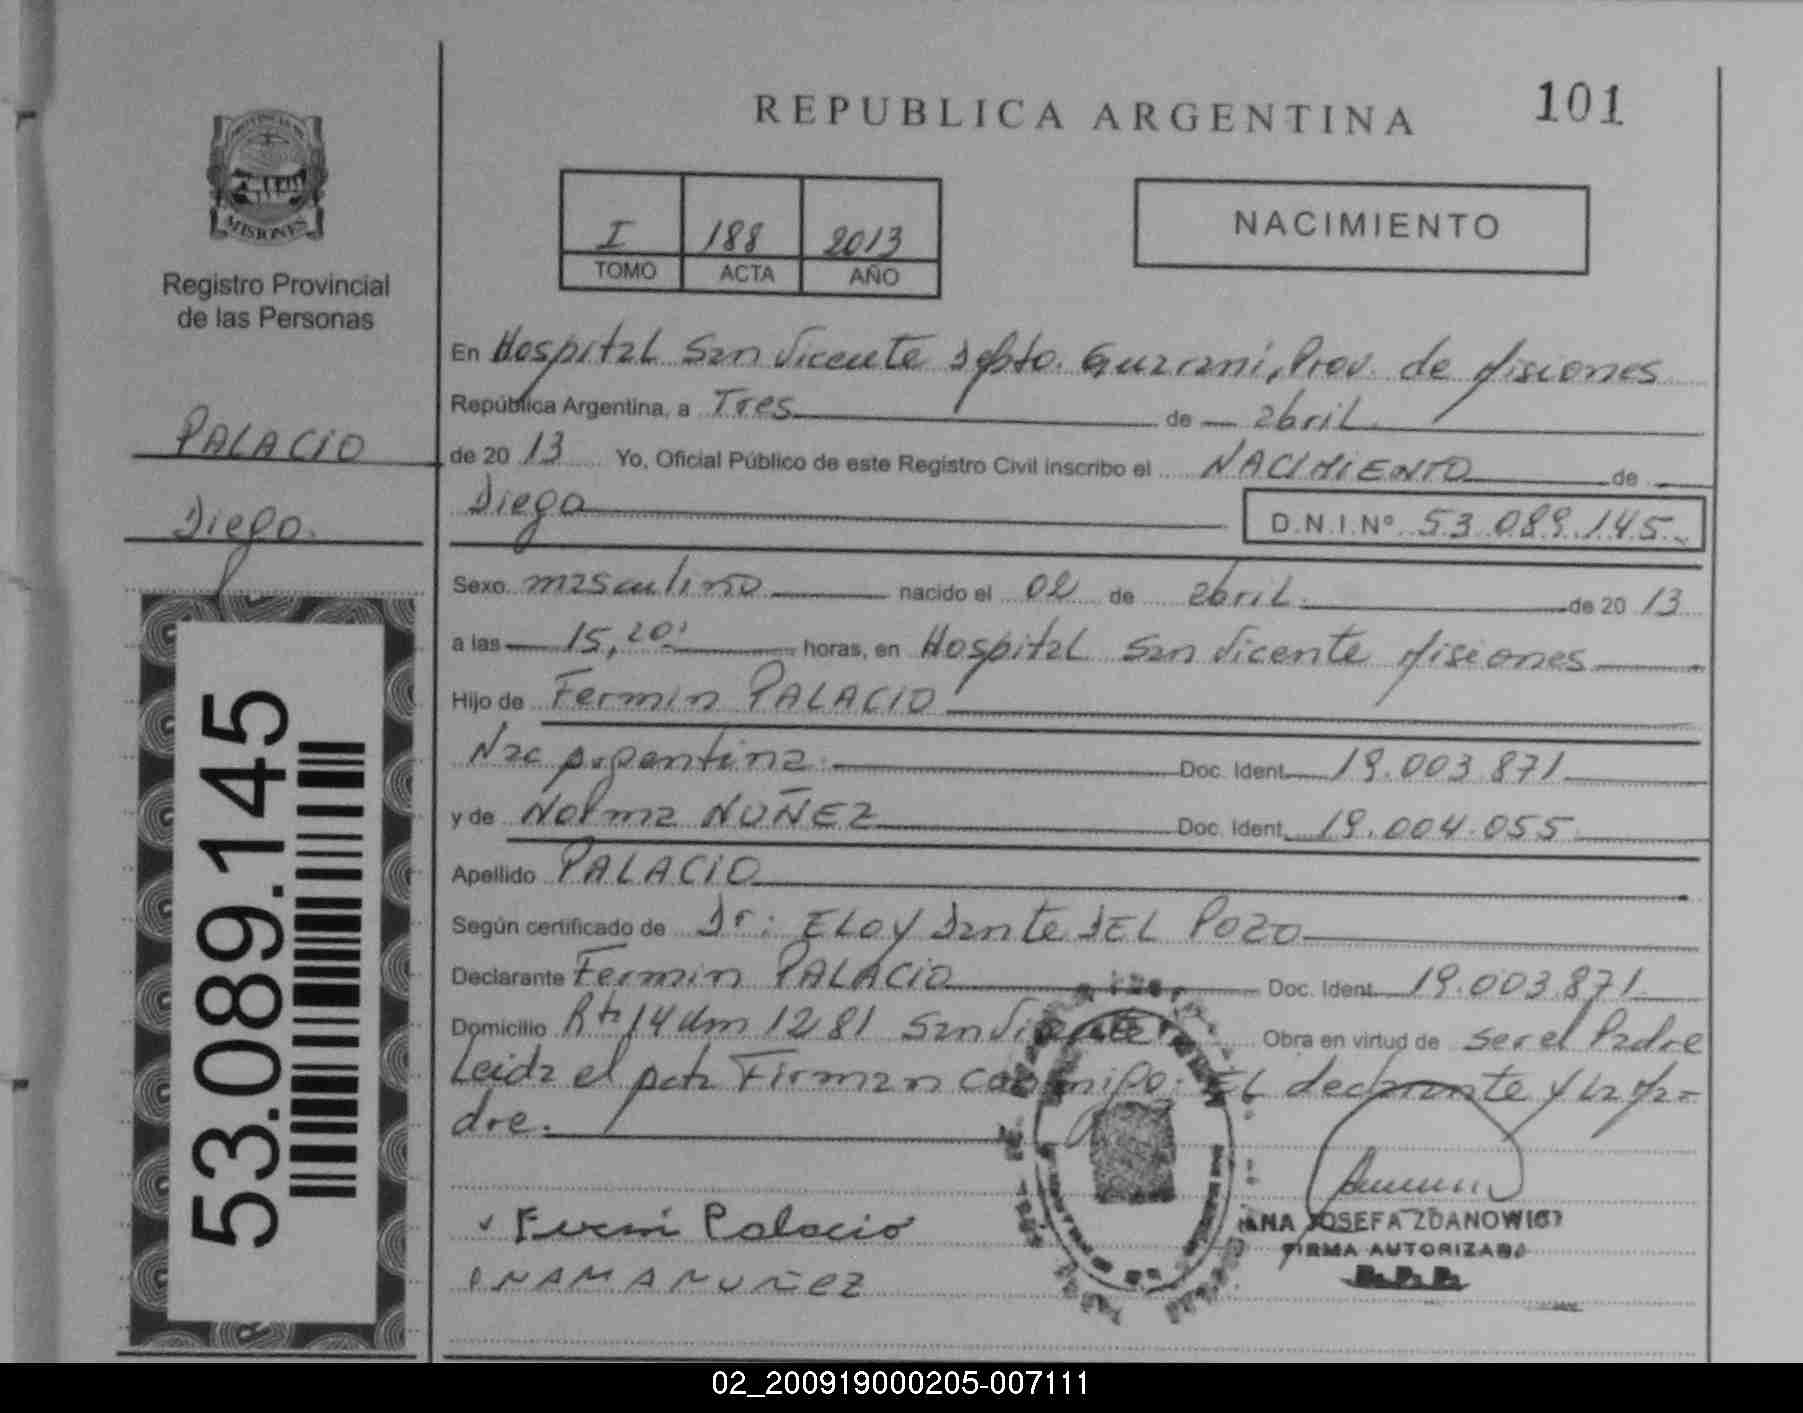 REPUBLICA ARGENTINA
101
PROVINCIA DE
MISIONES
Registro Provincial
de las Personas
PALACIO
Diego.
53.089.145
I 188 2013
TOMO ACTA AÑO
NACIMIENTO
En Hospital San Vicente Dpto. Guarani, Prov. de Misiones
República Argentina, a Tres de abril
de 20 13 Yo, Oficial Público de este Registro Civil inscribo el NACIMIENTO de
Diego
D.N.I.Nº 53.089.145
Sexo masculino nacido el 02 de abril de 20 13
a las 15,20 horas, en Hospital San Vicente Misiones
Hijo de Fermin PALACIO
Nac Argentina Doc. Ident. 19.003.871
y de Norma NUÑEZ Doc. Ident. 19.004.055
Apellido PALACIO
Según certificado de Dr: ELOY Dante DEL POZO
Declarante Fermin PALACIO Doc. Ident. 19.003.871
Domicilio Rta 14 Km 1281 San Vicente Obra en virtud de ser el Padre
Leida el acta Firman conmigo: EL declarante y la Ma=
dre.
Palacio
NUÑEZ
ANA JOSEFA ZDANOWICZ
FIRMA AUTORIZADA
R.P.P.
02_200919000205-007111